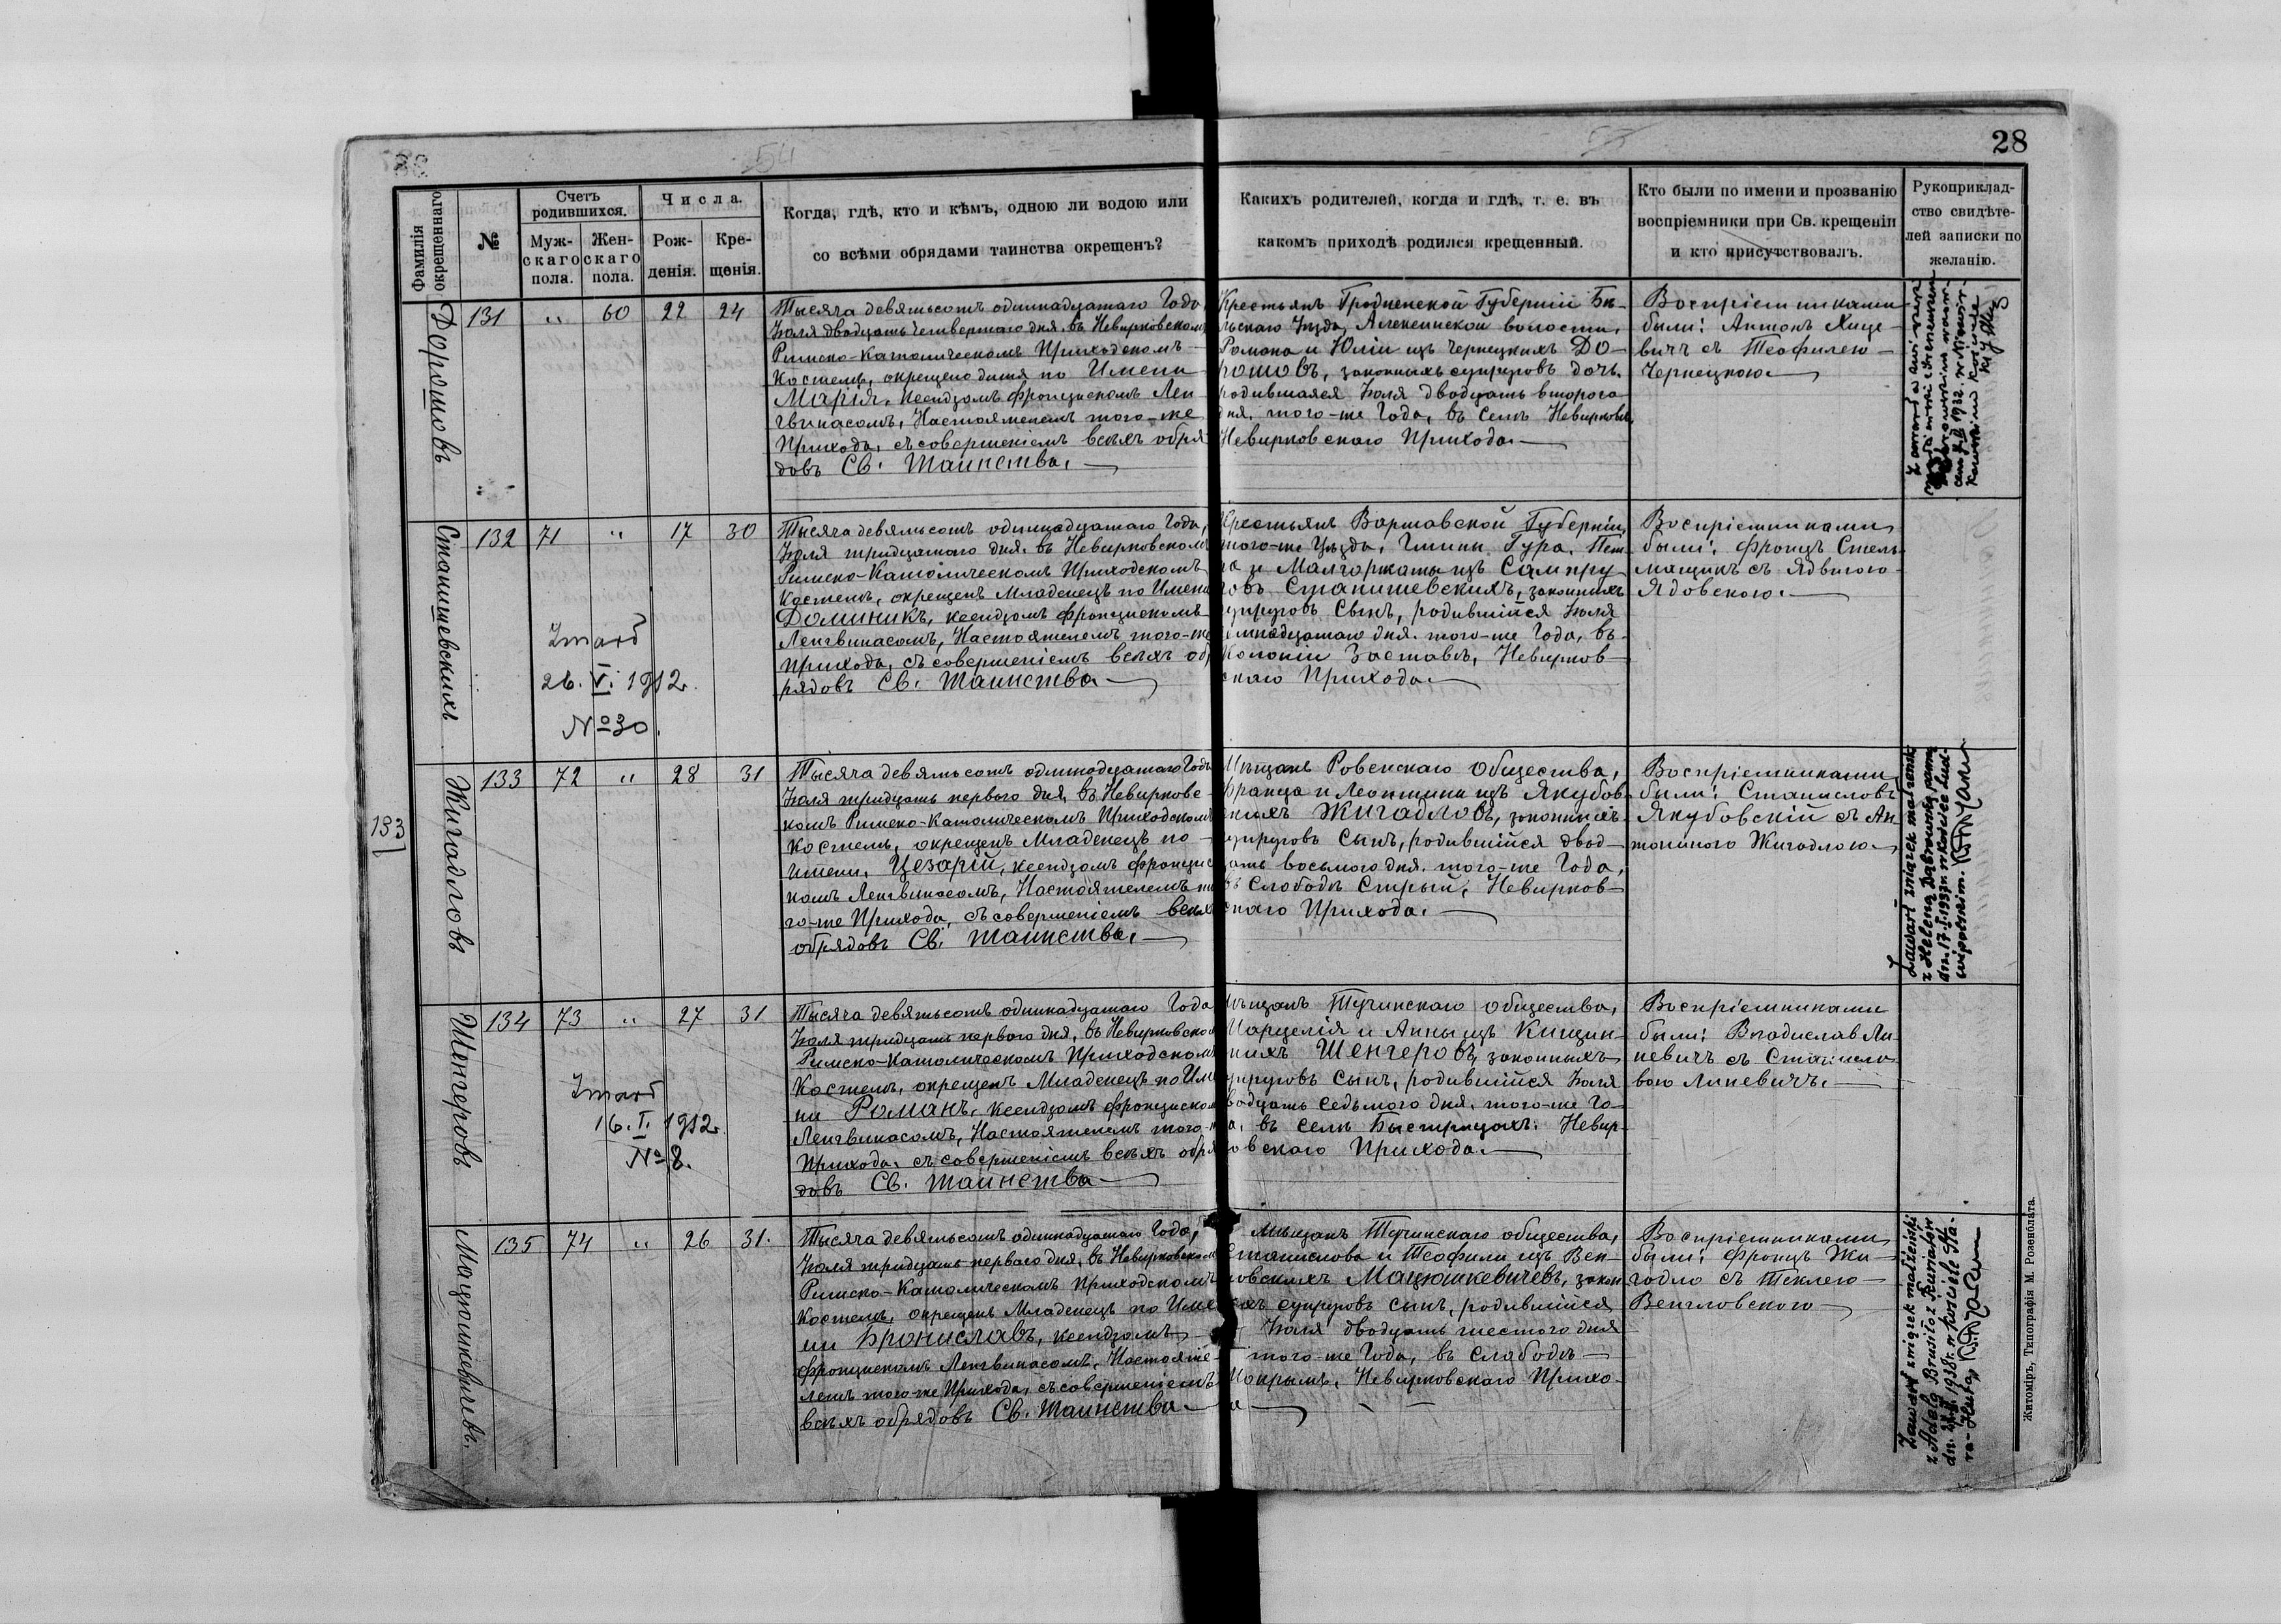 28
54
Фамилія окрещеннаго
№
Счетъ родившихся.
Муж-
скаго
пола.
Жен-
скаго
пола.
Числа.
Рож-
денія.
Кре-
щенія.
Когда, гдѣ, кто и кѣмъ, одною ли водою или
со всѣми обрядами таинства окрещенъ?
Какихъ родителей, когда и гдѣ, т. е. въ
какомъ приходѣ родился крещенный.
Кто были по имени и прозванію
воспріемники при Св. крещеніи
и кто присутствовалъ.
Рукоприклад-
ство свидѣте-
лей записки по
желанію.
Дорошовъ
131 " 60 22 24
Тысяча девятьсотъ одинадцатаго Года
Іюля двадцать четвертаго дня. въ Невирковскомъ
Римско-Католическомъ Приходскомъ
Костелѣ, окрещено дитя по Имени
Марія, ксендзомъ Францискомъ Лен
гвинасомъ, Настоятелемъ того-же
Прихода, съ совершеніемъ всѣхъ обря
довъ Св. Таинства.
Крестьянъ Гродненской Губерніи Бѣ-
льскаго Уѣзда, Алексинской волости,
Романа и Юліи изъ Чернецкихъ До-
рошовъ, законныхъ супруговъ дочь.
родившаяся Іюля двадцать второго
дня. того-же Года, въ селѣ Невирковѣ,
Невирковскаго Прихода.
Воспріемниками
были: Антонъ Хице-
вичъ съ Теофилею
Чернецкою.
Станишевскихъ
132 71 " 17 30
Тысяча девятьсотъ одинадцатаго Года,
Іюля тридцатаго дня. въ Невирковскомъ
Римско-Католическомъ Приходскомъ
Костелѣ, окрещенъ Младенецъ по Имени
Доминикъ, ксендзомъ Францискомъ
Ленгвинасомъ, Настоятелемъ того-же
Прихода, съ совершеніемъ всѣхъ об
рядовъ Св. Таинства
Zmarł
26. V. 1912 r.
№ 30.
Крестьянъ Варшавской Губерніи,
того-же Уѣзда, Гмины Гура, Пет
ра и Малгоржаты изъ Сампру
говъ Станишевскихъ, законныхъ
супруговъ Сынъ, родившійся Іюля
семнадцатаго дня. того-же Года, въ
Колоніи Заставѣ, Невирков
скаго Прихода.
Воспріемниками
были: Францъ Стель-
мащикъ съ Ядвигою
Ядовскою.
193
Жигадловъ
133 72 " 28 31
Тысяча девятьсотъ одинадцатаго Года
Іюля тридцать перваго дня, въ Невирковс-
комъ Римско-Католическомъ Приходскомъ
Костелѣ, окрещенъ Младенецъ по
имени, Цезарій, ксендзомъ Францис
комъ Ленгвинасомъ, Настоятелемъ то
го-же Прихода, съ совершеніемъ всѣхъ
обрядовъ Св. Таинства.
Мѣщанъ Ровенскаго Общества,
Франца и Леонтины изъ Якубов-
скихъ Жигадловъ, законныхъ
супруговъ Сынъ, родившійся двад-
цать восьмого дня. того-же Года,
въ Слободѣ Стрый, Невирков-
скаго Прихода.
Воспріемниками
были: Станиславъ
Якубовскій съ Ан-
тониною Жигадлою.
Zawarł związek małżeński
z Heleną Dąbrowską
dn. 17. I. 1937 r. w kościele Lud-
wipolskim.
Шенгеровъ
134 73 " 27 31
Тысяча девятьсотъ одинадцатаго Года
Іюля тридцать перваго дня, въ Невирковском
Римско-Католическомъ Приходскомъ
Костелѣ, окрещенъ Младенецъ по Име
ни Романъ, ксендзомъ Францискомъ
Ленгвинасомъ, Настоятелемъ того-же
Прихода, съ совершеніемъ всѣхъ обря
довъ Св. Таинства
Zmarł
16. I. 1912 r.
№ 8.
Мѣщанъ Тучинскаго общества,
Марцелія и Анны изъ Кищин-
скихъ Шенгеровъ, законныхъ
супруговъ сынъ, родившійся Іюля
двадцать седьмого дня, того-же Го-
да, въ селѣ Быстрицахъ. Невир-
ковскаго Прихода.
Воспріемниками
были: Владиславъ Ли-
невичъ съ Станисла
вою Линевичъ.
Мацюшкевичевъ.
135 74 " 26 31.
Тысяча девятьсотъ одинадцатаго Года,
Іюля тридцать перваго дня, въ Невирковском
Римско-Католическомъ Приходскомъ
Костелѣ, окрещенъ Младенецъ по Име
ни Брониславъ, ксендзомъ
Францискомъ Ленгвинасомъ, Настояте-
лемъ того-же Прихода, съ совершеніемъ
всѣхъ обрядовъ Св. Таинства
Мѣщанъ Тучинскаго общества,
Станислава и Теофили изъ Вен-
ловскихъ Мацюшкевичевъ, закон
ыхъ супруговъ сынъ, родившійся
Іюля двадцать шестого дня
того-же Года, въ Слободѣ
Мокрымъ, Невирковскаго Прихо-
да
Воспріемниками
были: Францъ Жи-
гадло съ Теклею
Венгловскою
Zawarł związek małżeński
z Adelą Brusiło z
1938 r. w kościele Sta-
ra-Huta
Житоміръ, Типографія М. Розенблата.